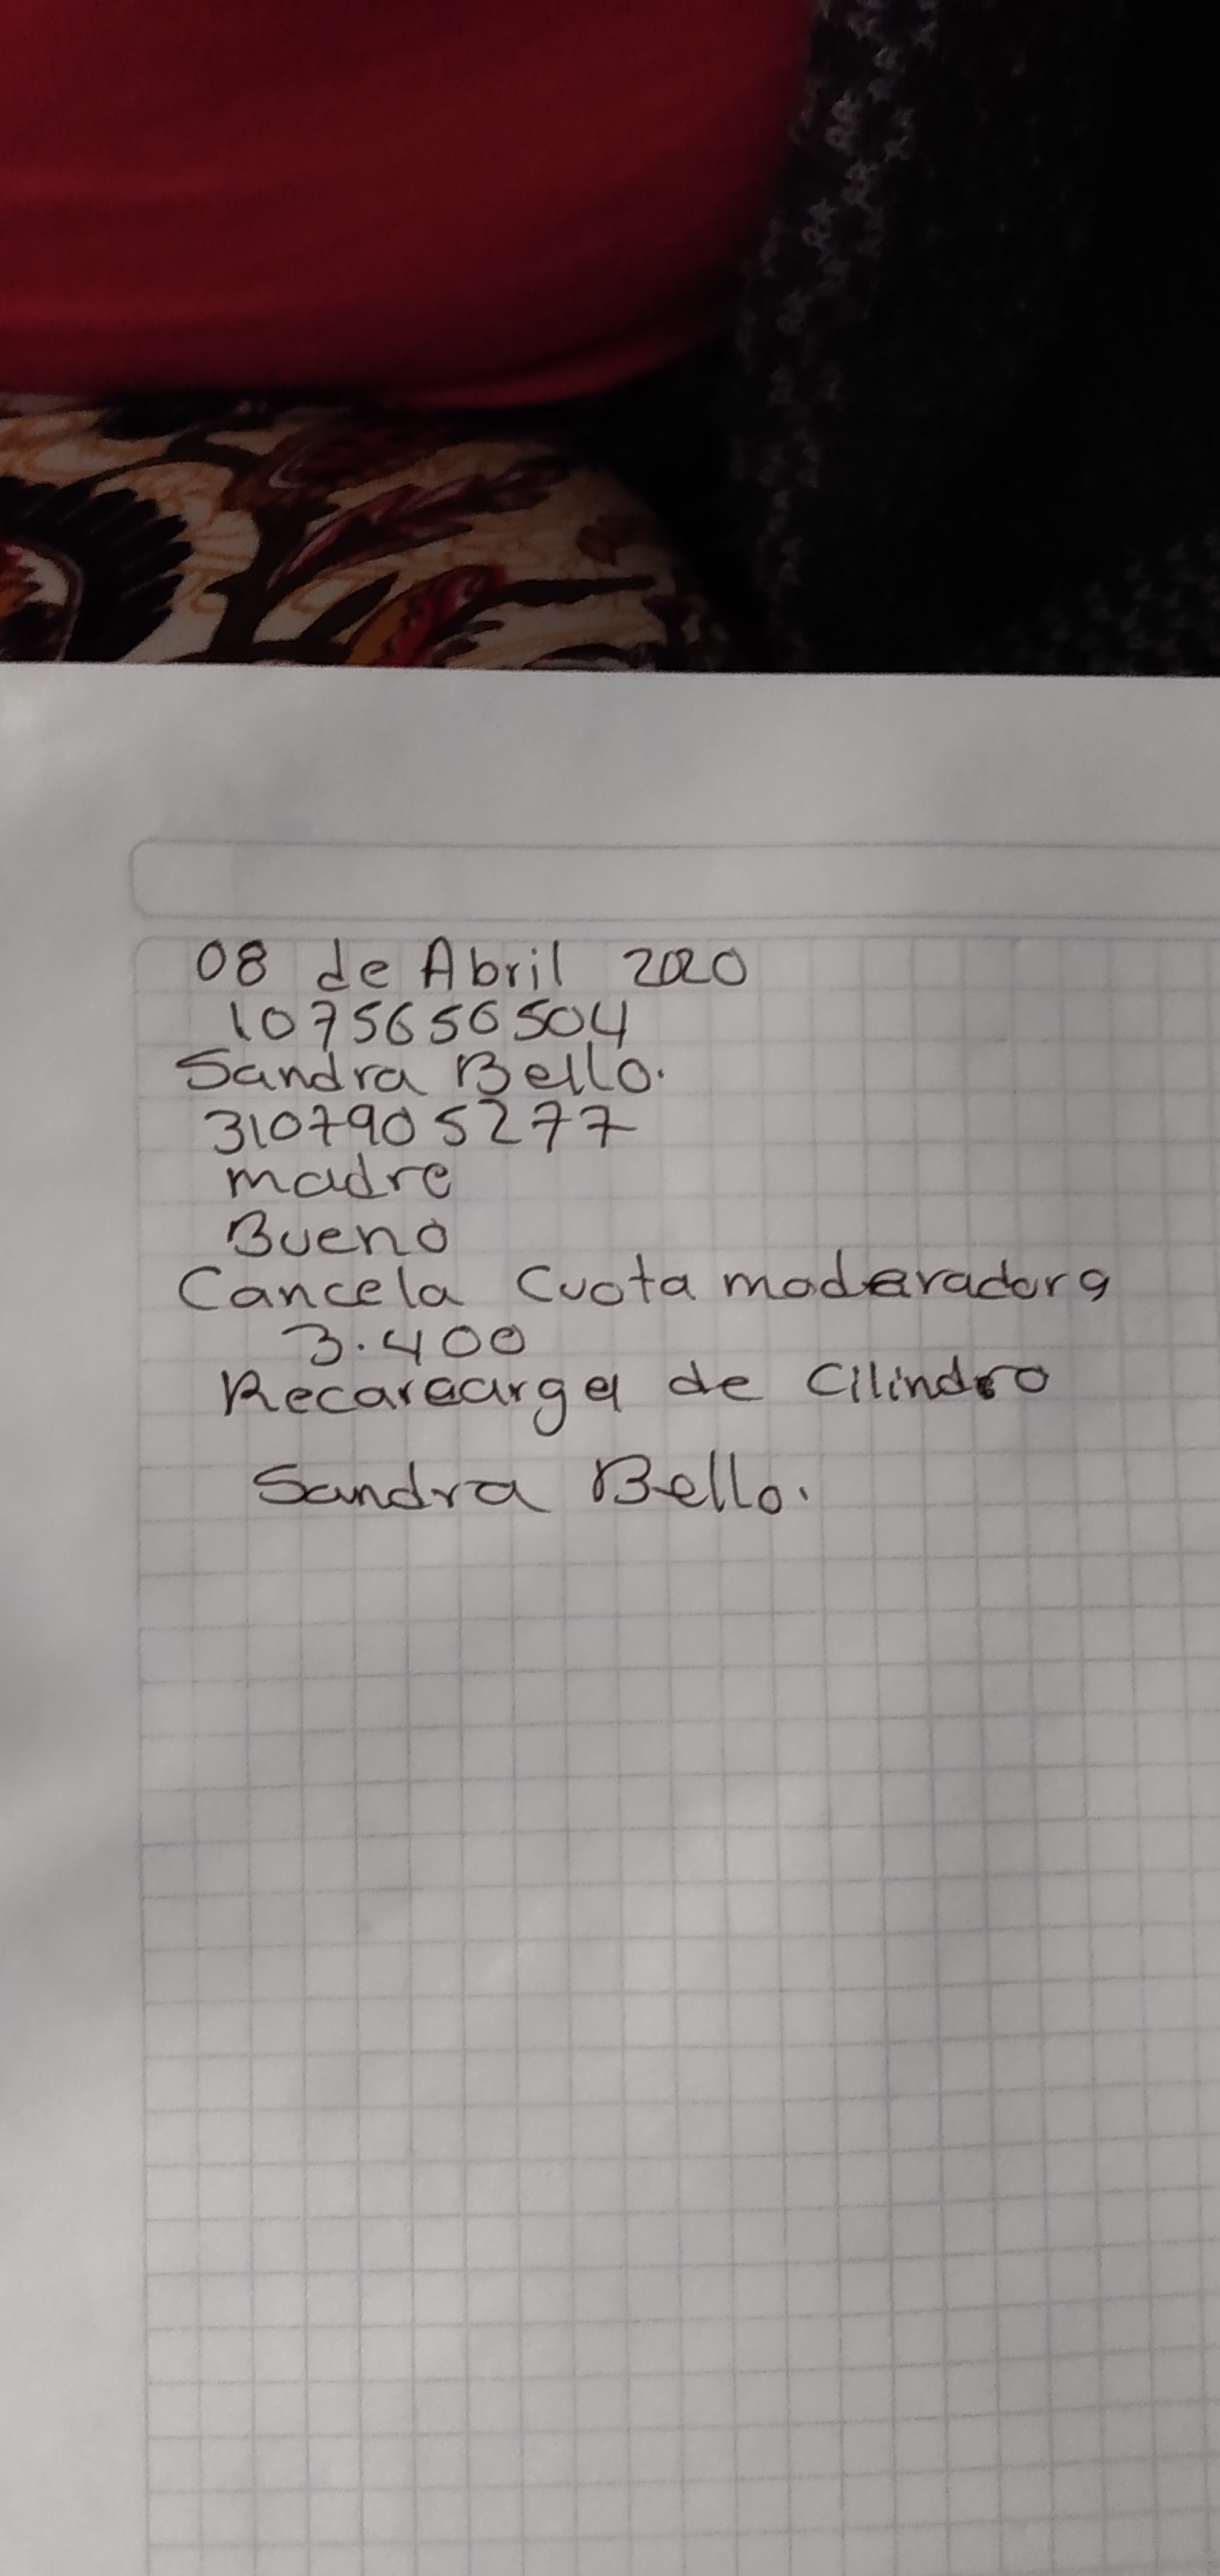 08 de Abril 2020
1075656504
Sandra Bello.
3107905277
madre
Bueno
Cancela Cuota moderadora
3.400
Recarcarga de Cilindro
Sandra Bello.